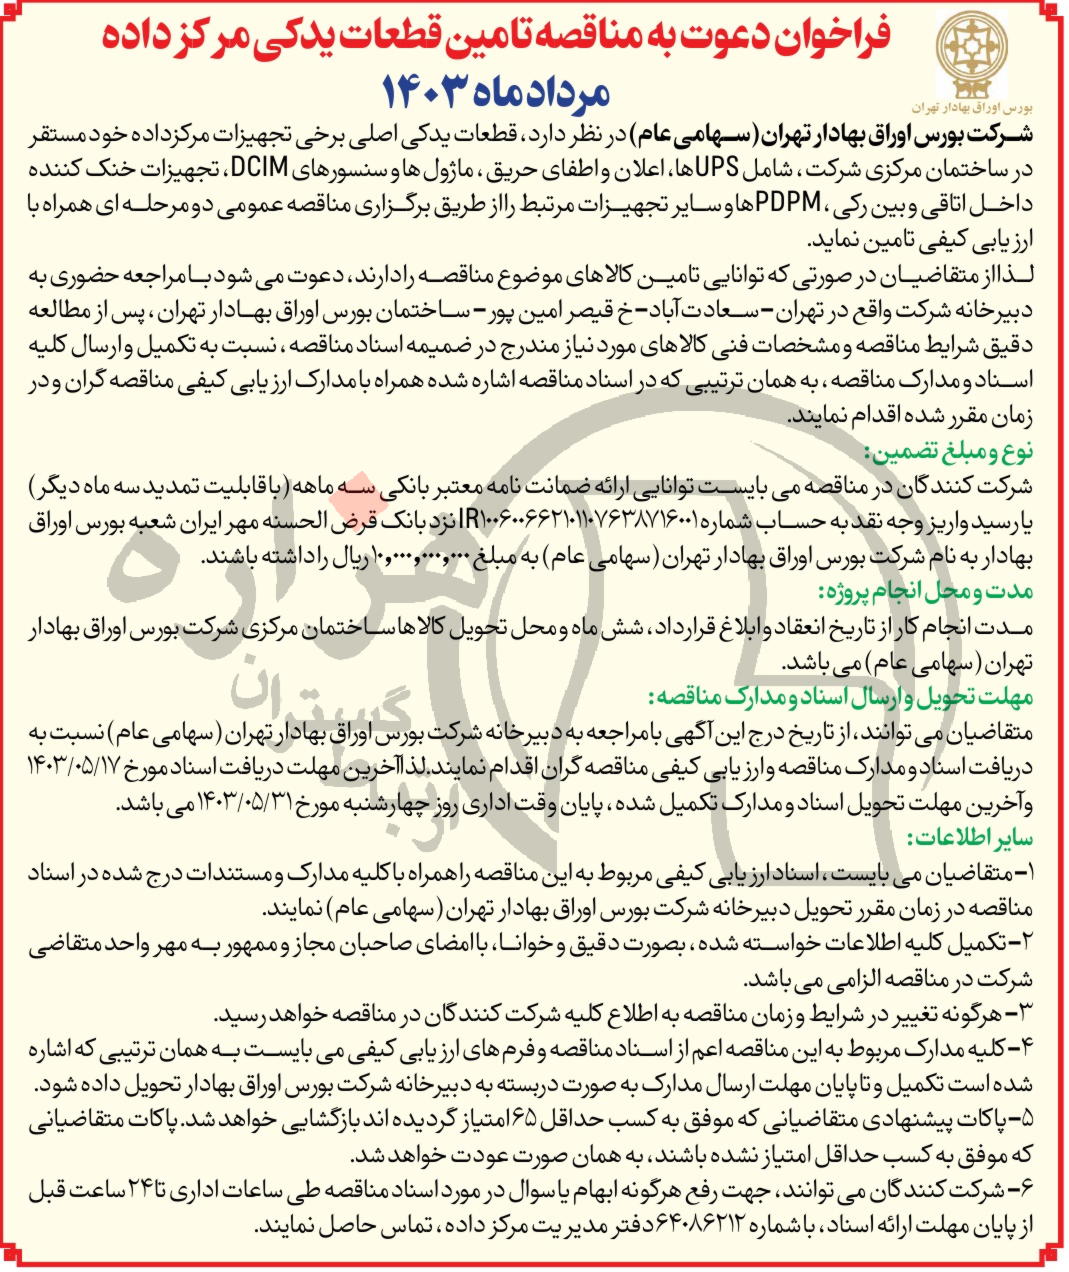 فراخوان دعوت به مناقصه تامین قطعات یدکی مرکز داده
مرداد ماه ۱۴۰۳
بورس اوراق بهادار تهران
شرکت بورس اوراق بهادار تهران (سهامی عام) در نظر دارد، قطعات یدکی اصلی برخی تجهیزات مرکزداده خود مستقر
در ساختمان مرکزی شرکت، شامل UPSها، اعلان و اطفای حریق، ماژول ها و سنسورهای DCIM، تجهیزات خنک کننده
داخل اتاقی و بین رکی، PDPMها و سایر تجهیزات مرتبط را از طریق برگزاری مناقصه عمومی دو مرحله ای همراه با
ارزیابی کیفی تامین نماید.
لذا از متقاضیان در صورتی که توانایی تامین کالاهای موضوع مناقصه را دارند، دعوت می شود با مراجعه حضوری به
دبیرخانه شرکت واقع در تهران- سعادت آباد- خ قیصر امین پور- ساختمان بورس اوراق بهادار تهران، پس از مطالعه
دقیق شرایط مناقصه و مشخصات فنی کالاهای مورد نیاز مندرج در ضمیمه اسناد مناقصه، نسبت به تکمیل و ارسال کلیه
اسناد و مدارک مناقصه، به همان ترتیبی که در اسناد مناقصه اشاره شده همراه با مدارک ارزیابی کیفی مناقصه گران و در
زمان مقرر شده اقدام نمایند.
نوع و مبلغ تضمین:
شرکت کنندگان در مناقصه می بایست توانایی ارائه ضمانت نامه معتبر بانکی سه ماهه (با قابلیت تمدید سه ماه دیگر)
یا رسید واریز وجه نقد به حساب شماره IR۱۰۰۶۰۰۶۶۲۱۰۱۱۰۷۶۳۸۷۱۶۰۰۱ نزد بانک قرض الحسنه مهر ایران شعبه بورس اوراق
بهادار به نام شرکت بورس اوراق بهادار تهران (سهامی عام) به مبلغ ۱۰,۰۰۰,۰۰۰,۰۰۰ ریال را داشته باشند.
مدت و محل انجام پروژه:
مدت انجام کار از تاریخ انعقاد و ابلاغ قرارداد، شش ماه و محل تحویل کالاها ساختمان مرکزی شرکت بورس اوراق بهادار
تهران (سهامی عام) می باشد.
مهلت تحویل و ارسال اسناد و مدارک مناقصه:
متقاضیان می توانند، از تاریخ درج این آگهی با مراجعه به دبیرخانه شرکت بورس اوراق بهادار تهران (سهامی عام) نسبت به
دریافت اسناد و مدارک مناقصه و ارزیابی کیفی مناقصه گران اقدام نمایند. لذا آخرین مهلت دریافت اسناد مورخ ۱۴۰۳/۰۵/۱۷
و آخرین مهلت تحویل اسناد و مدارک تکمیل شده، پایان وقت اداری روز چهارشنبه مورخ ۱۴۰۳/۰۵/۳۱ می باشد.
سایر اطلاعات:
۱- متقاضیان می بایست، اسناد ارزیابی کیفی مربوط به این مناقصه را همراه با کلیه مدارک و مستندات درج شده در اسناد
مناقصه در زمان مقرر تحویل دبیرخانه شرکت بورس اوراق بهادار تهران (سهامی عام) نمایند.
۲- تکمیل کلیه اطلاعات خواسته شده، بصورت دقیق و خوانا، با امضای صاحبان مجاز و ممهور به مهر واحد متقاضی
شرکت در مناقصه الزامی می باشد.
۳- هرگونه تغییر در شرایط و زمان مناقصه به اطلاع کلیه شرکت کنندگان در مناقصه خواهد رسید.
۴- کلیه مدارک مربوط به این مناقصه اعم از اسناد مناقصه و فرم های ارزیابی کیفی می بایست به همان ترتیبی که اشاره
شده است تکمیل و تا پایان مهلت ارسال مدارک به صورت دربسته به دبیرخانه شرکت بورس اوراق بهادار تحویل داده شود.
۵- پاکات پیشنهادی متقاضیانی که موفق به کسب حداقل ۶۵ امتیاز گردیده اند بازگشایی خواهد شد. پاکات متقاضیانی
که موفق به کسب حداقل امتیاز نشده باشند، به همان صورت عودت خواهد شد.
۶- شرکت کنندگان می توانند، جهت رفع هرگونه ابهام یا سوال در مورد اسناد مناقصه طی ساعات اداری تا ۲۴ ساعت قبل
از پایان مهلت ارائه اسناد، با شماره ۶۴۰۸۶۲۱۲ دفتر مدیریت مرکز داده، تماس حاصل نمایند.
هزاره
گستران
ارتباط